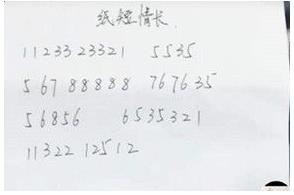 纸短情长
11233 23321 5535
5 67 88888 7676 35
56856 6535321
11322 12512